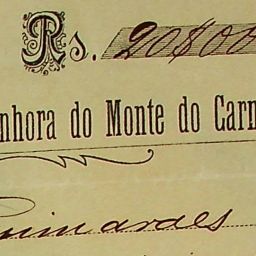 Rs. 20$00
nhora do Monte do Carm
Guimaraes